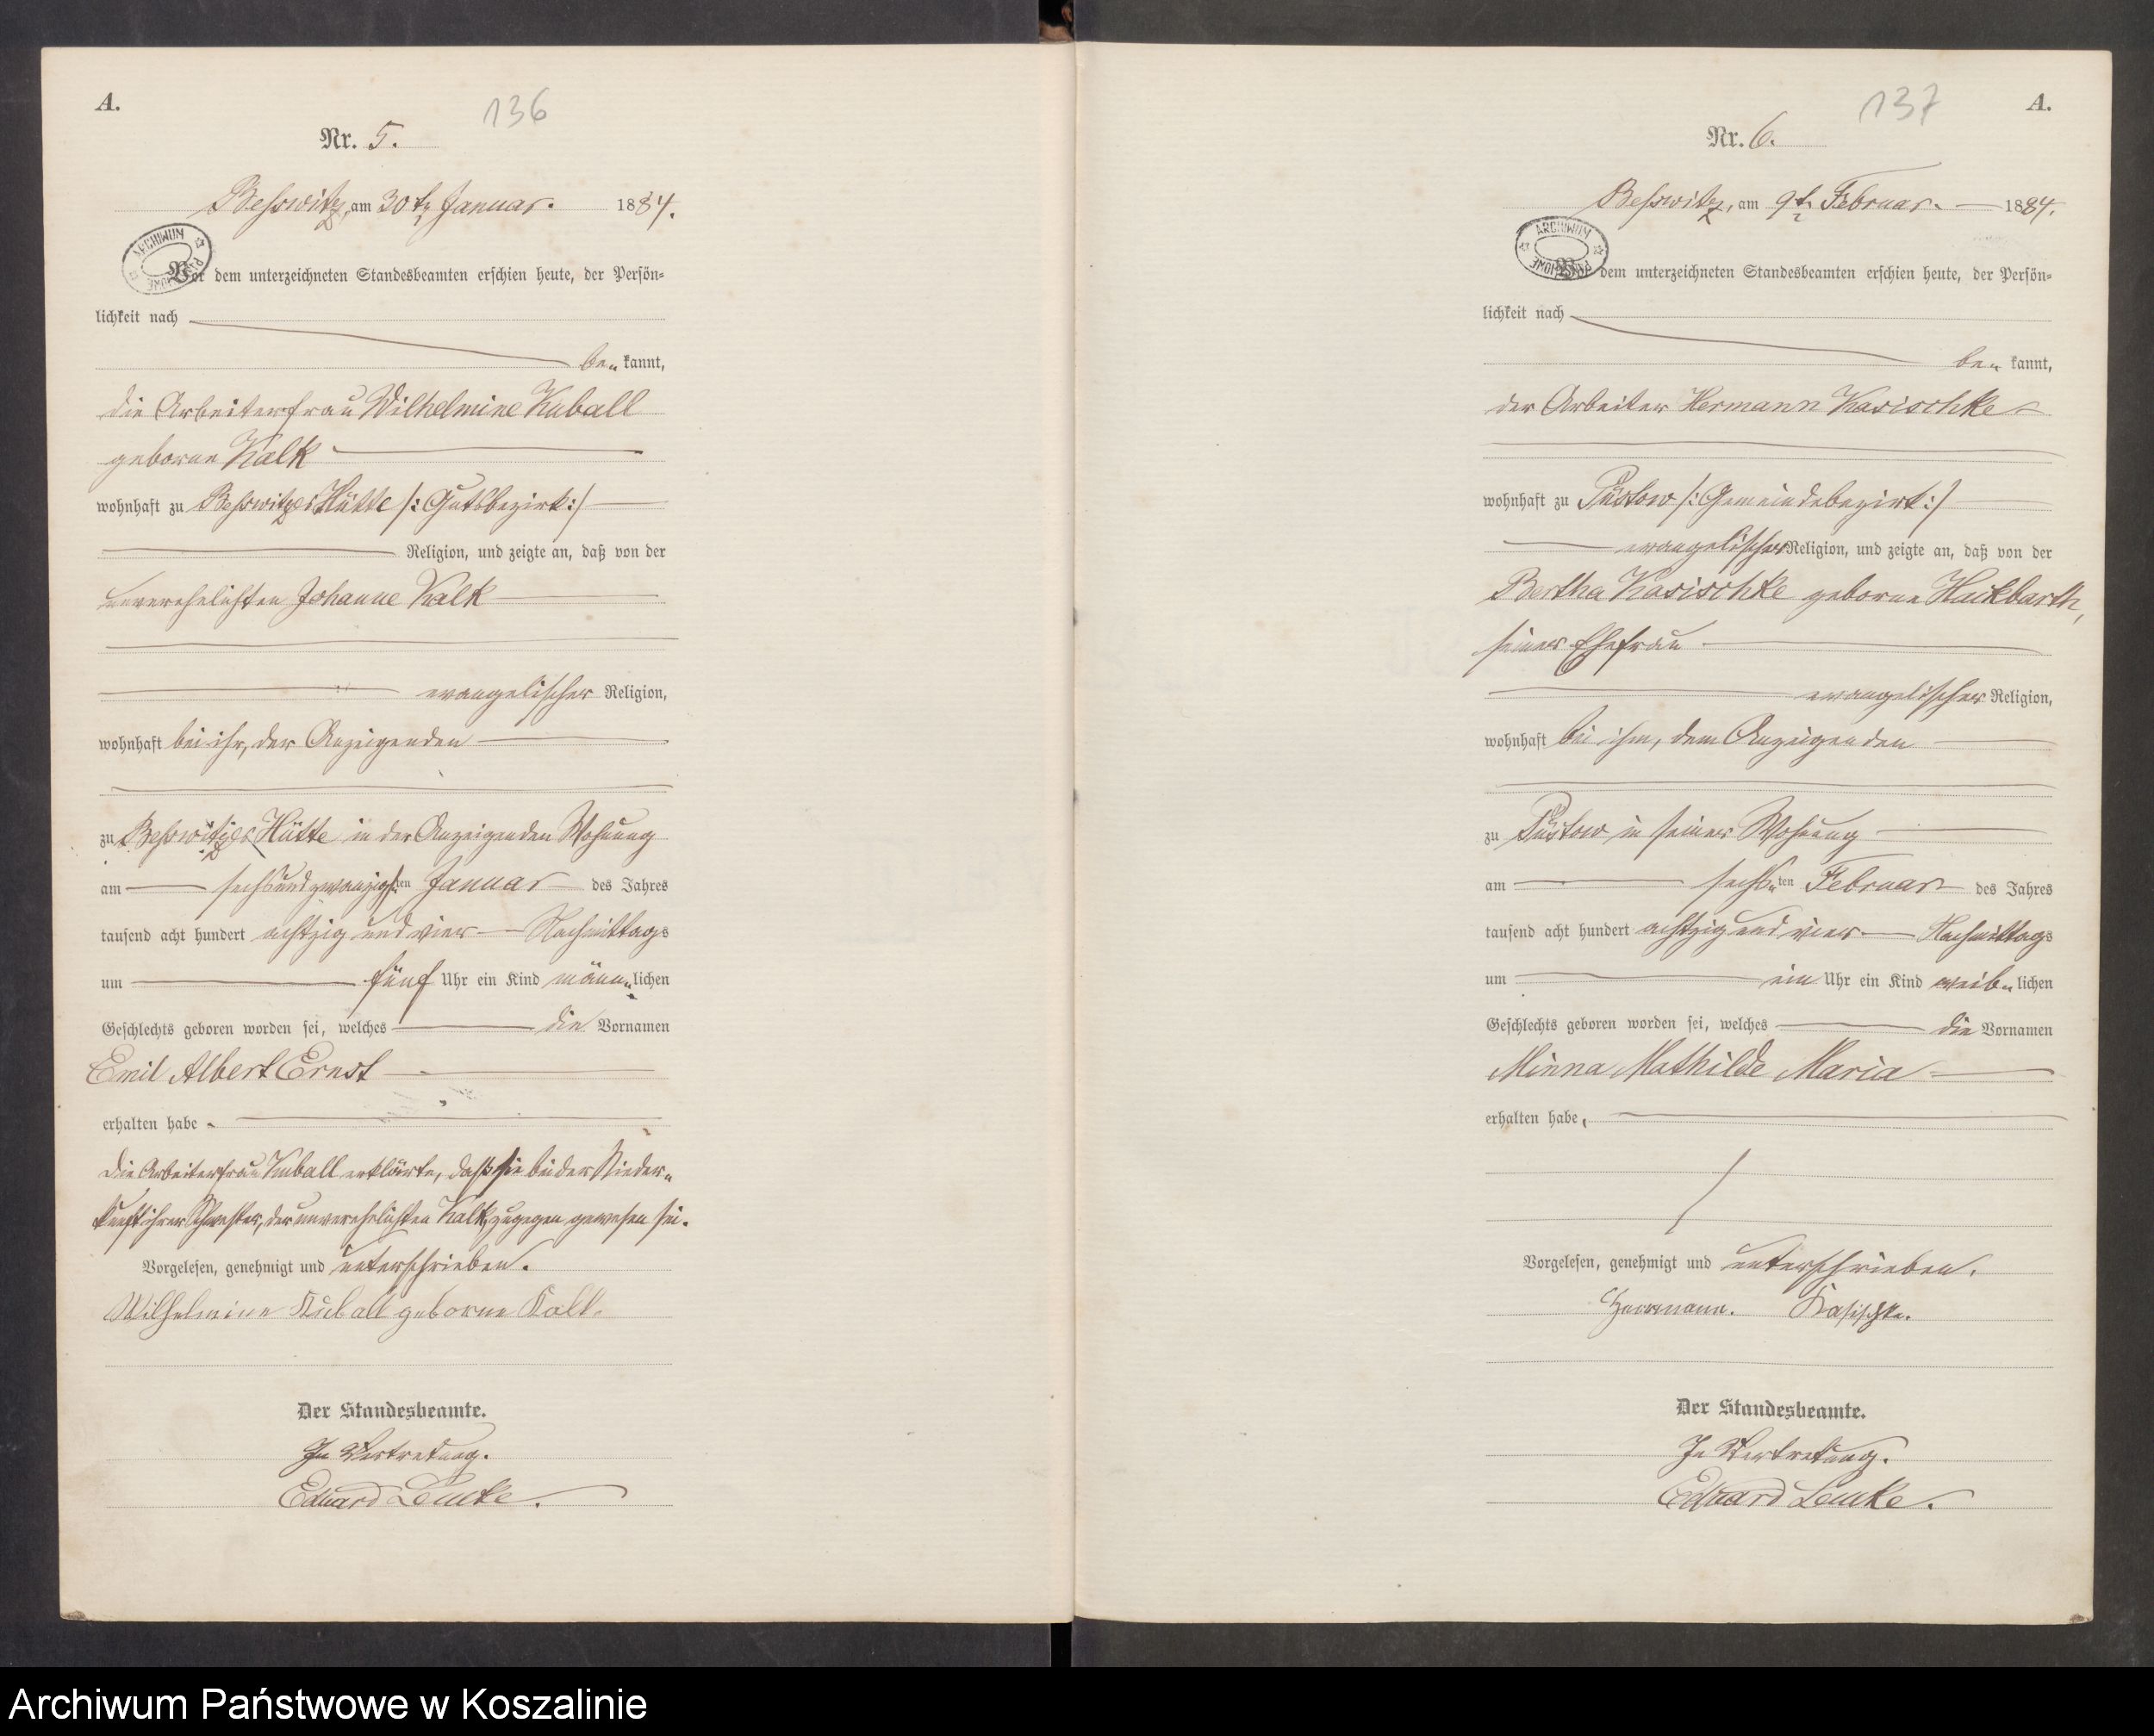 A.
136
Nr. 5.
Beßwitz, am 30t. Januar. 1884.
ARCHIWUM
Vor dem unterzeichneten Standesbeamten erschien heute, der Persön-
lichkeit nach
be„ kannt,
die Arbeiterfrau Wilhelmine Kuball
geborne Kalk
wohnhaft zu Beßwitzer Hütte /: Gutsbezirk :/
Religion, und zeigte an, daß von der
unverehelichten Johanne Kalk
evangelischer Religion,
wohnhaft bei ihr, der Anzeigenden
zu Beßwitzer Hütte in der Anzeigenden Wohnung
am sechsundzwanzigsten Januar des Jahres
tausend acht hundert achtzig und vier Nachmittags
um fünf Uhr ein Kind männ„lichen
Geschlechts geboren worden sei, welches die Vornamen
Emil Albert Ernst
erhalten habe.
Die Arbeiterfrau Kuball erklärte, daß sie bei der Nieder„
kunft ihrer Schwester, der unverehelichten Kalk, zugegen gewesen sei.
Vorgelesen, genehmigt und unterschrieben.
Wilhelmine Kuball geborne Kalk.
Der Standesbeamte.
In Vertretung.
Eduard Lemke.
137
A.
Nr. 6.
Beßwitz, am 9t. Februar. 1884.
ARCHIWUM
Vor dem unterzeichneten Standesbeamten erschien heute, der Persön-
lichkeit nach
be„ kannt,
der Arbeiter Hermann Kasischke
wohnhaft zu Püstow /: Gemeindebezirk :/
evangelischer Religion, und zeigte an, daß von der
Bertha Kasischke geborne Hackbarth,
seiner Ehefrau
evangelischer Religion,
wohnhaft bei ihm, dem Anzeigenden
zu Püstow in seiner Wohnung
am sechs„ten Februar des Jahres
tausend acht hundert achtzig und vier Nachmittags
um ein Uhr ein Kind weib„lichen
Geschlechts geboren worden sei, welches die Vornamen
Minna Mathilde Maria
erhalten habe,
Vorgelesen, genehmigt und unterschrieben.
Herrmann. Kasischke.
Der Standesbeamte.
In Vertretung.
Eduard Lemke.
Archiwum Państwowe w Koszalinie